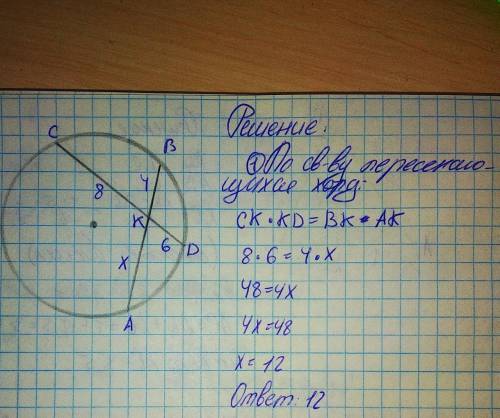 Решение:
① По св-ву пересекаю-
щихся хорд:
CK • KD = BK • AK
8 • 6 = 4 • x
48 = 4x
4x = 48
x = 12
Ответ: 12
C
B
8
4
K
6
D
x
A